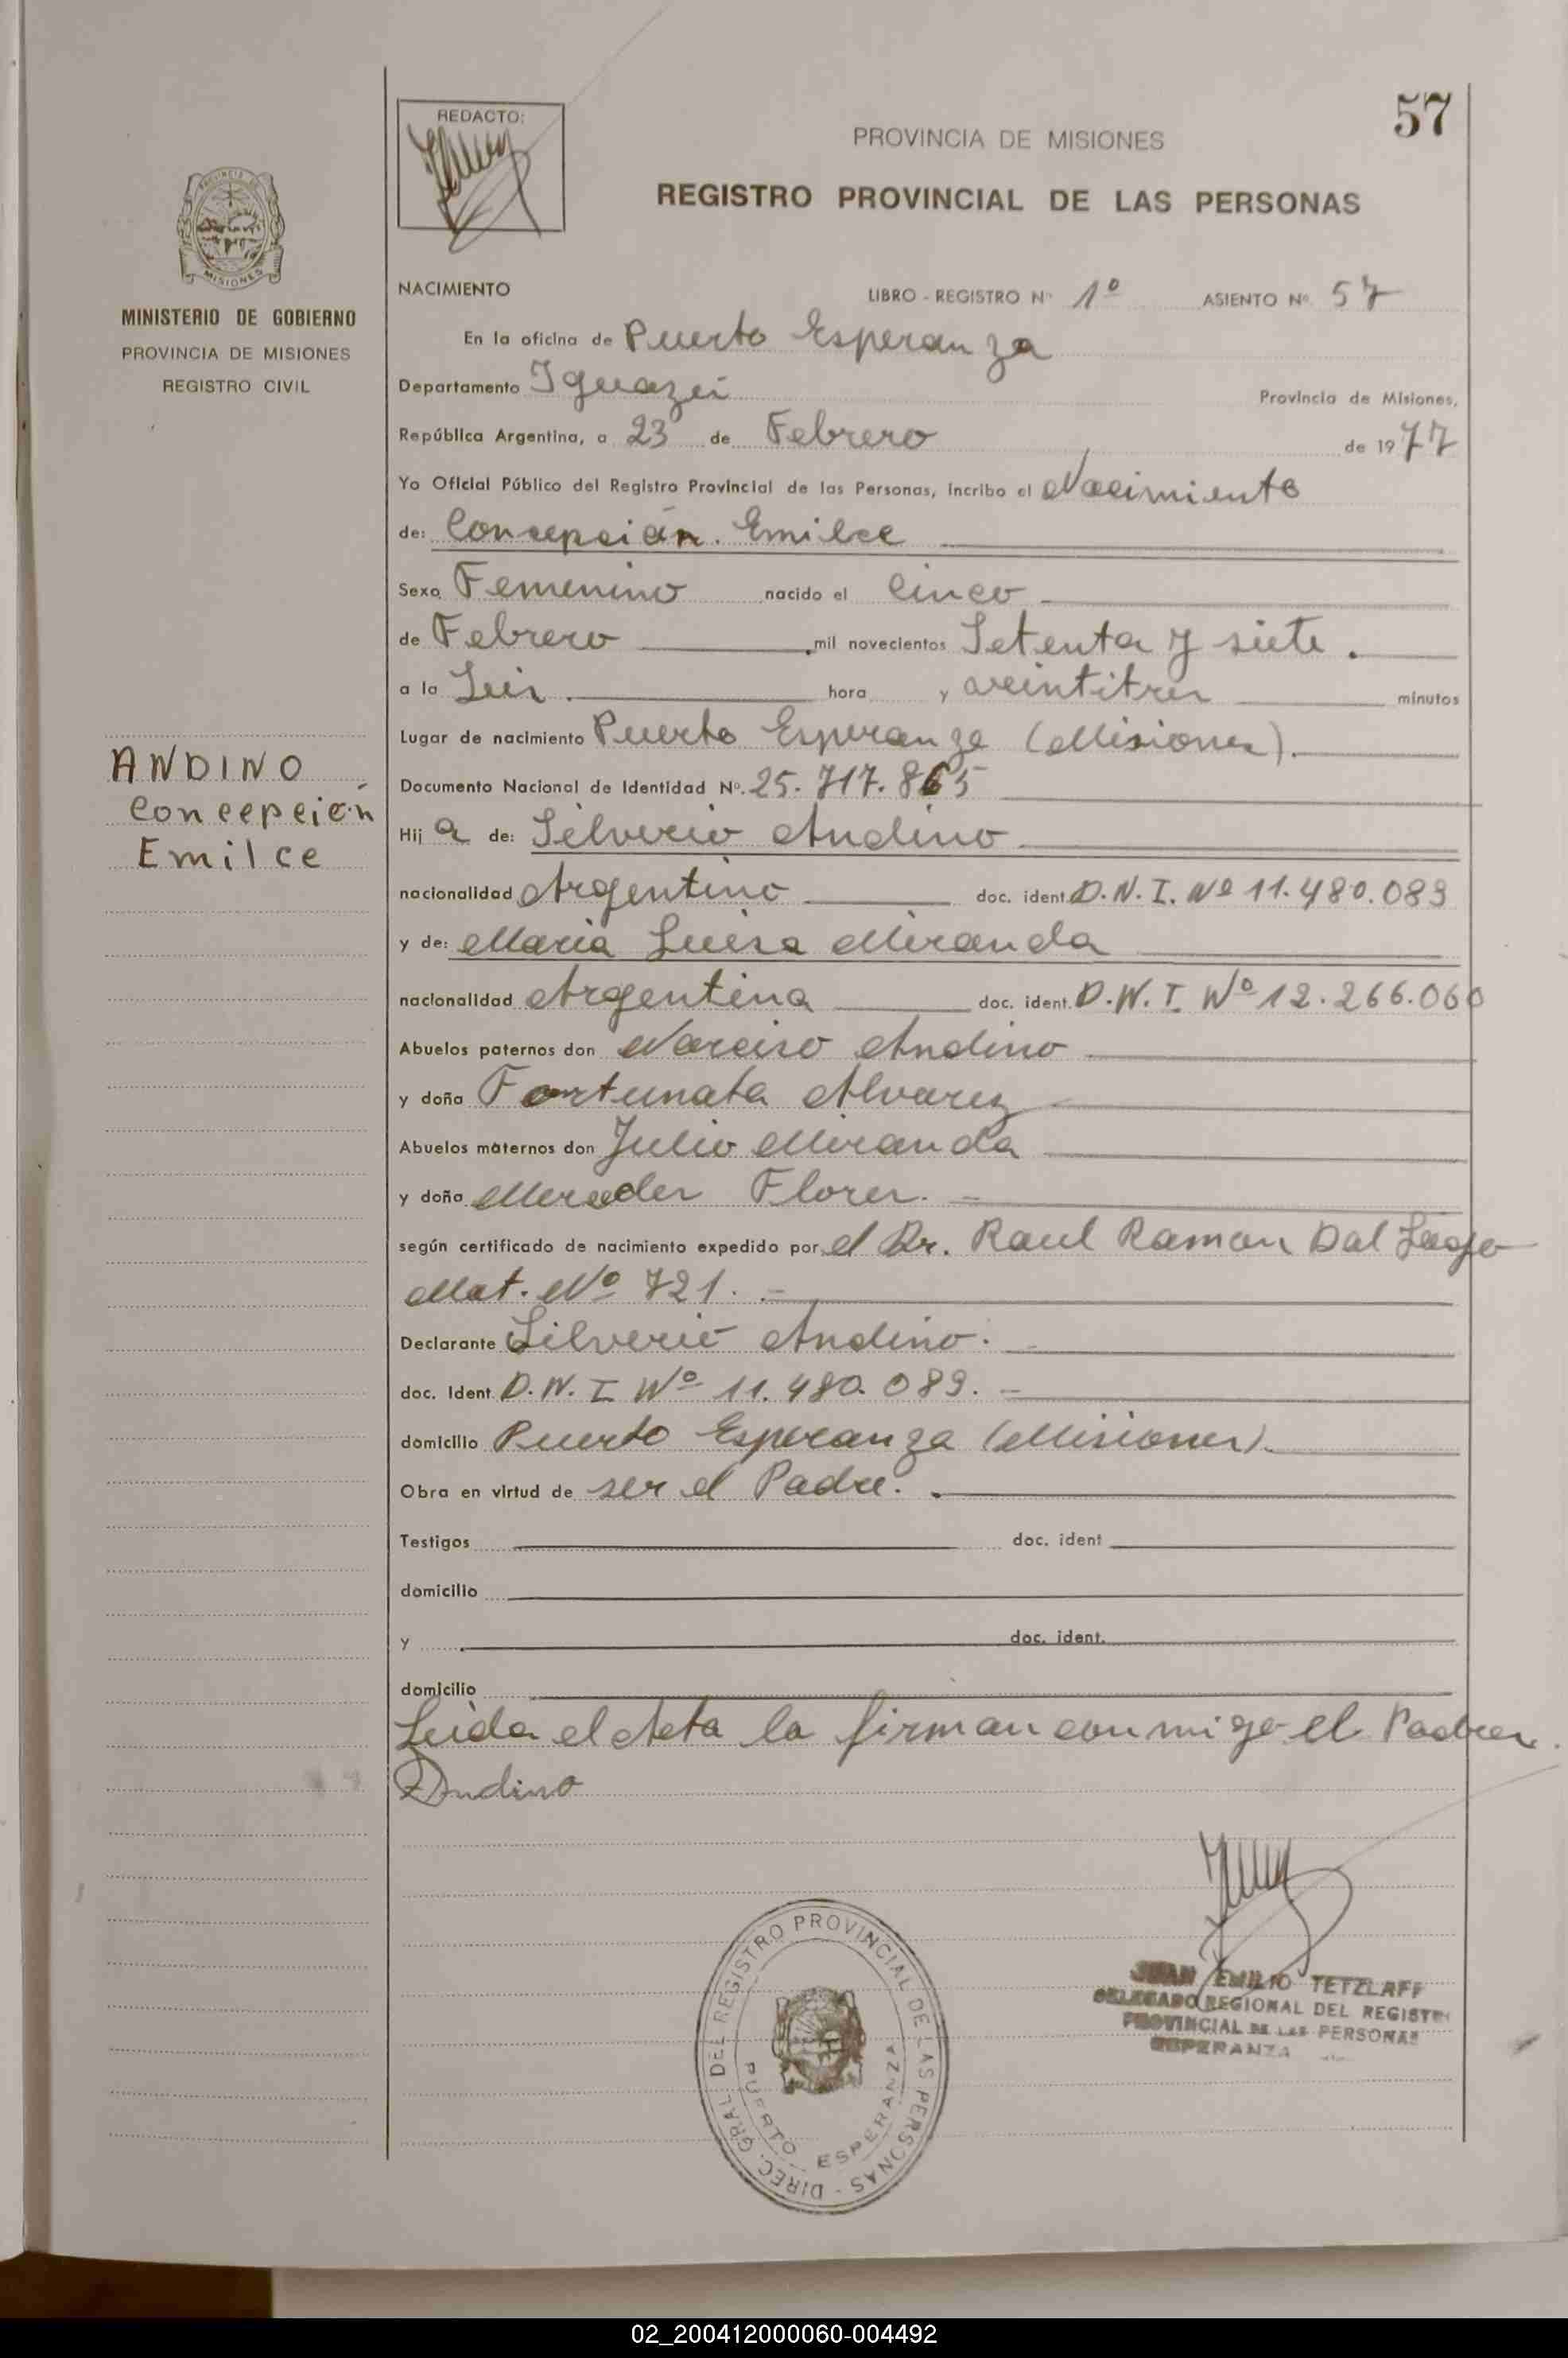 57
REDACTO:
PROVINCIA DE MISIONES
REGISTRO PROVINCIAL DE LAS PERSONAS
PROVINCIA DE
MISIONES
MINISTERIO DE GOBIERNO
PROVINCIA DE MISIONES
REGISTRO CIVIL
NACIMIENTO LIBRO - REGISTRO Nº 1º ASIENTO Nº 57
En la oficina de Puerto Esperanza
Departamento Iguazú Provincia de Misiones,
República Argentina, a 23 de Febrero de 1977
Yo Oficial Público del Registro Provincial de las Personas, incribo el Nacimiento
de: Concepción. Emilce
Sexo Femenino nacido el Cinco
de Febrero mil novecientos Setenta y siete.
a la Seis. hora y veintitres minutos
Lugar de nacimiento Puerto Esperanza (Misiones).
Documento Nacional de Identidad Nº. 25.717.865
ANDINO
Concepción
Emilce
Hij a de: Silverio Andino
nacionalidad Argentino doc. ident. D.N.I. Nº 11.480.089
y de: Maria Luisa Miranda
nacionalidad Argentina doc. ident. D.N.I. Nº 12.266.060
Abuelos paternos don Narciso Andino
y doña Fortunata Alvarez
Abuelos maternos don Julio Miranda
y doña Mercedes Flores.
según certificado de nacimiento expedido por el Dr. Raul Ramon Dal
Mat. Nº 721.
Declarante Silverio Andino.
doc. Ident. D.N.I Nº 11.480.089.
domicilio Puerto Esperanza (Misiones).
Obra en virtud de ser el Padre.
Testigos doc. ident
domicilio
y doc. ident.
domicilio
Leida el Acta la firman conmigo el Padre.
Andino
DIREC. GRAL. DEL REGISTRO PROVINCIAL DE LAS PERSONAS -
PUERTO ESPERANZA
JUAN EMILIO TETZLAFF
DELEGADO REGIONAL DEL REGISTRO
PROVINCIAL DE LAS PERSONAS
ESPERANZA
02_200412000060-004492